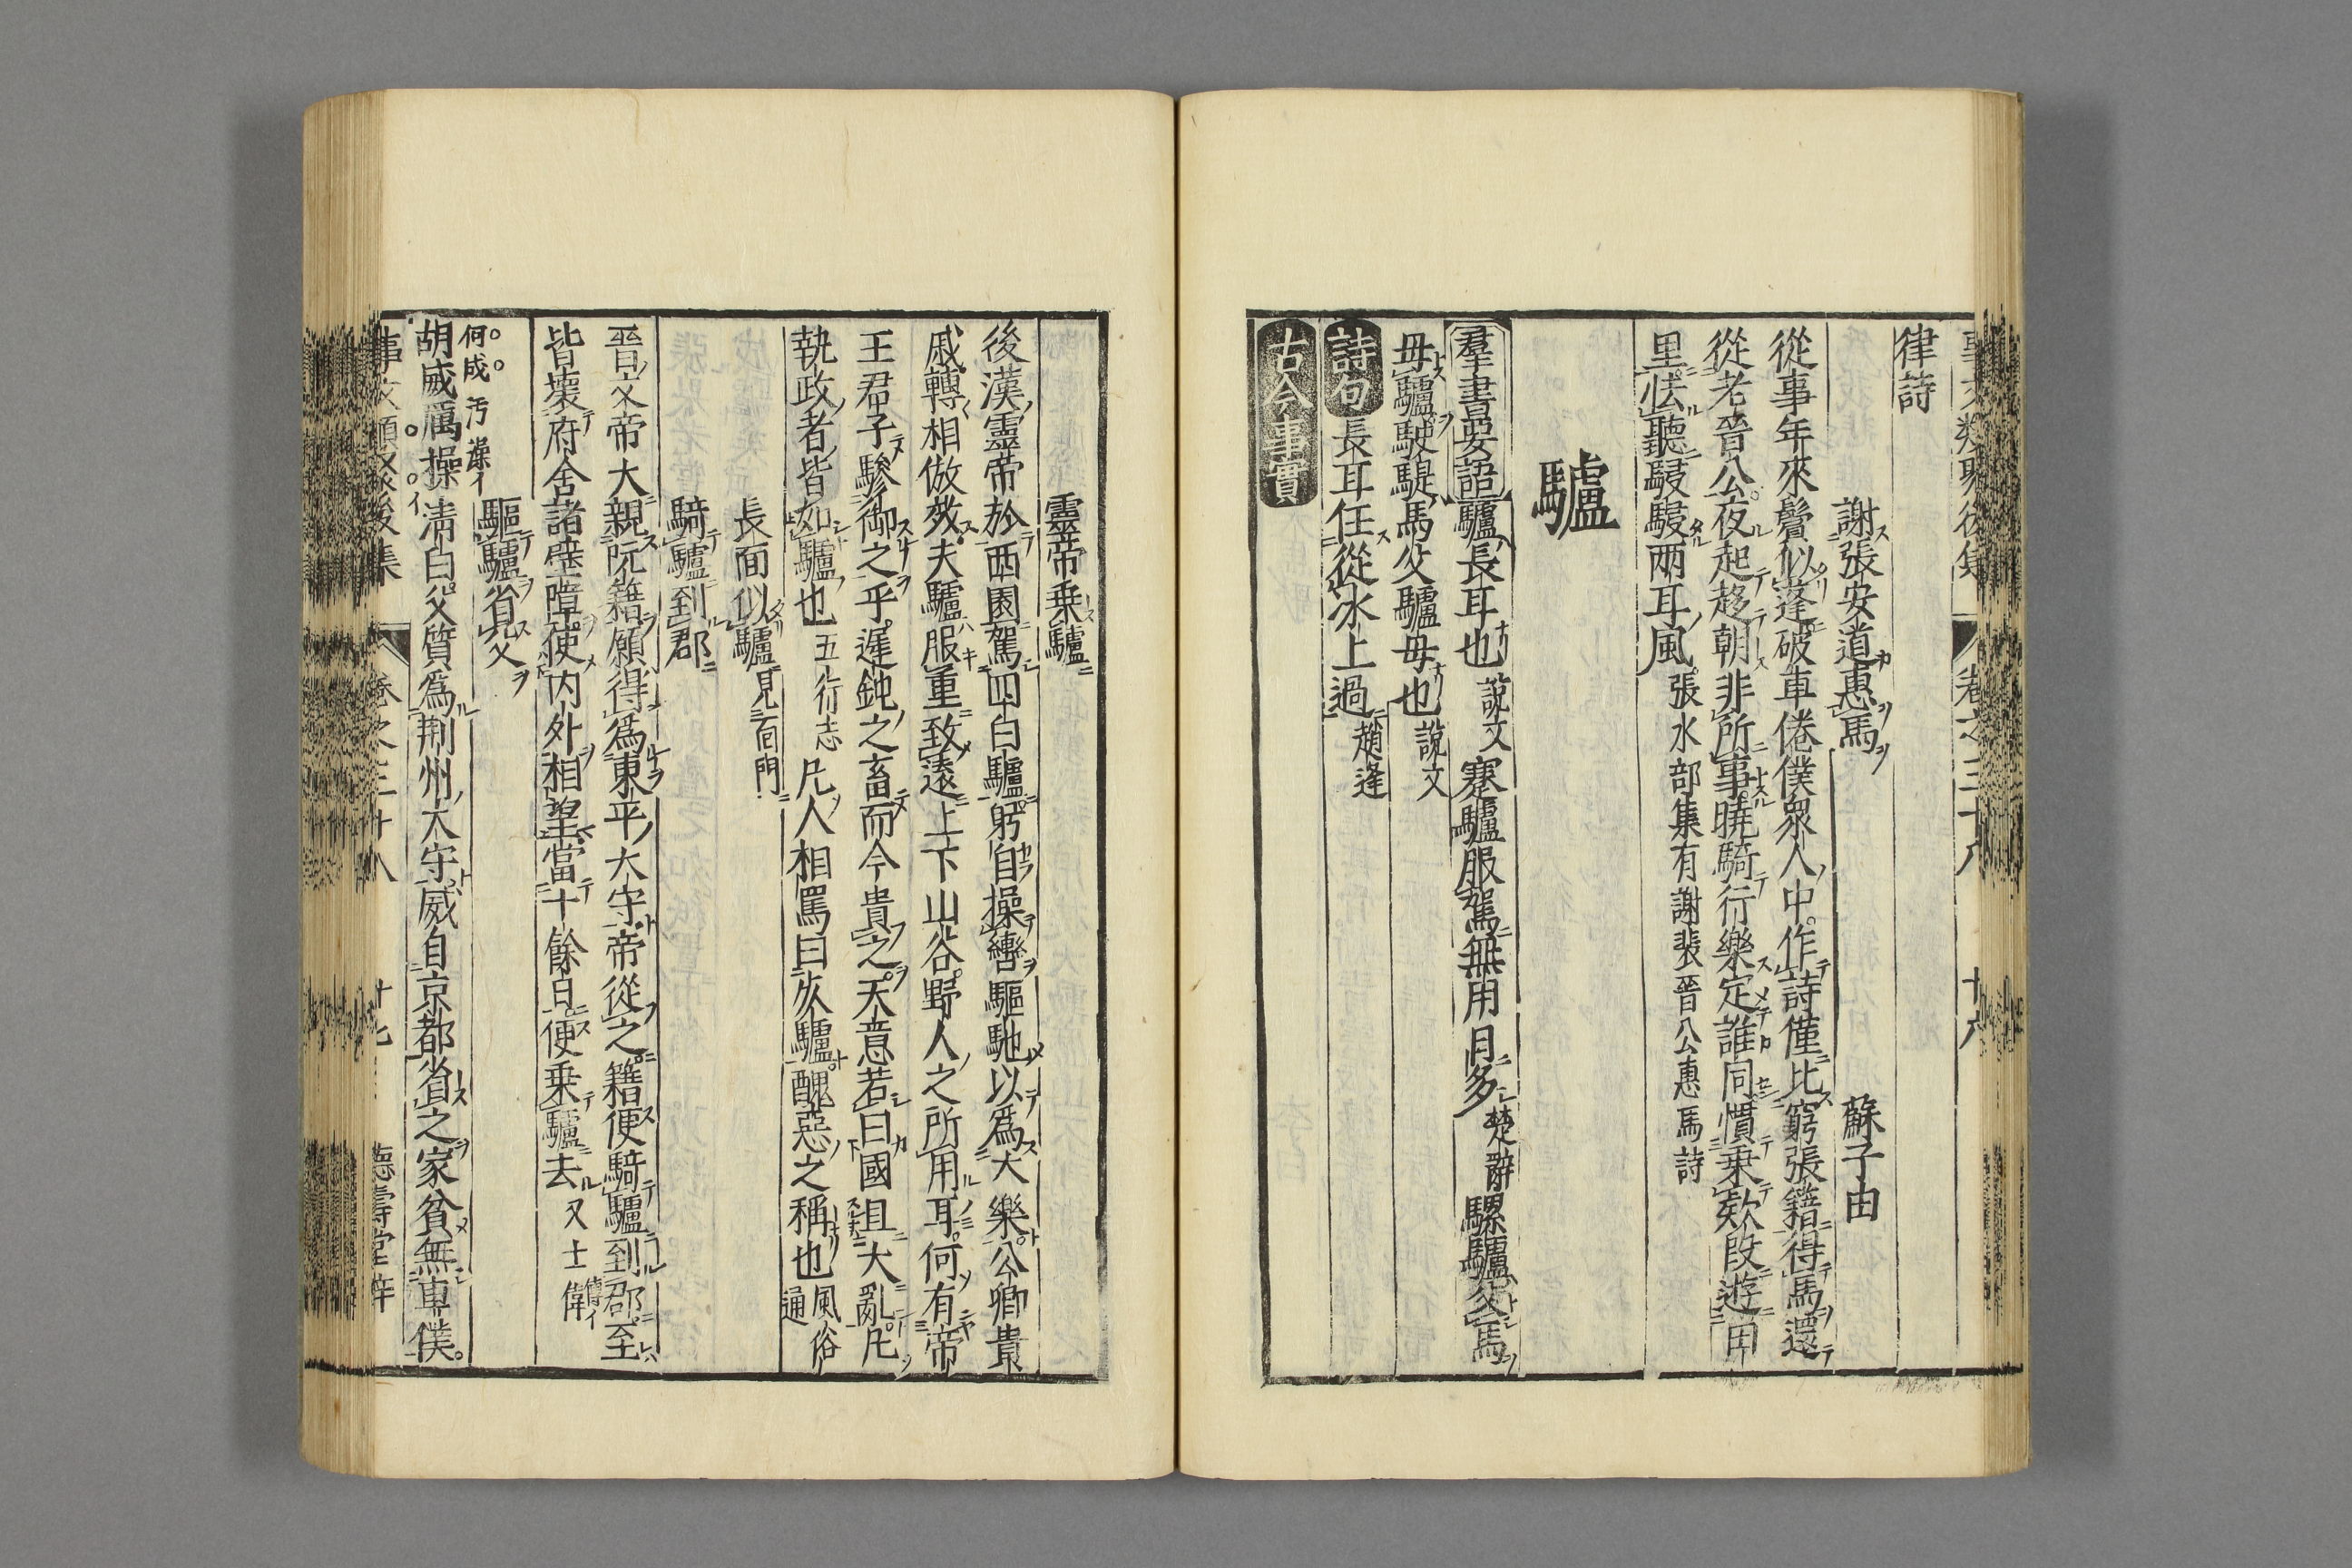 律詩
謝張安道惠馬 蘇子由
從事年來鬢似蓬破車倦僕衆人中作詩僅比窮張籍得馬還
從老晉公夜起趍朝非所事曉騎行樂定誰同慣乗欵段遊田
里怯聽駸駸兩耳風 張水部集有謝裴晉公惠馬詩
驢
羣書要語 驢長耳也 說文 蹇驢服駕無用日多 楚辭 騾驢父馬
毋驢駃騠馬父驢毋也 說文
詩句 長耳任從氷上過 趙逢
古今事實
靈帝乗驢
後漢靈帝於西園駕四白驢躬自操轡驅馳以爲大樂公卿貴
戚轉相倣效夫驢服重致遠上下山谷野人之所用耳何有帝
王君子驂御之乎遲鈍之畜而今貴之天意若曰國且大亂凡
執政者皆如驢也 五行志 凡人相罵曰死驢醜惡之稱也 風俗通
長面似驢 見面門
騎驢到郡
晋文帝大親阮籍願得爲東平大守帝從之籍便騎驢到郡至
皆壊府舍諸壁障使内外相望當十餘日便乗驢去 又士偉
驅驢省父
胡威厲操清白父質爲荆州大守威自京都省之家貧無車僕